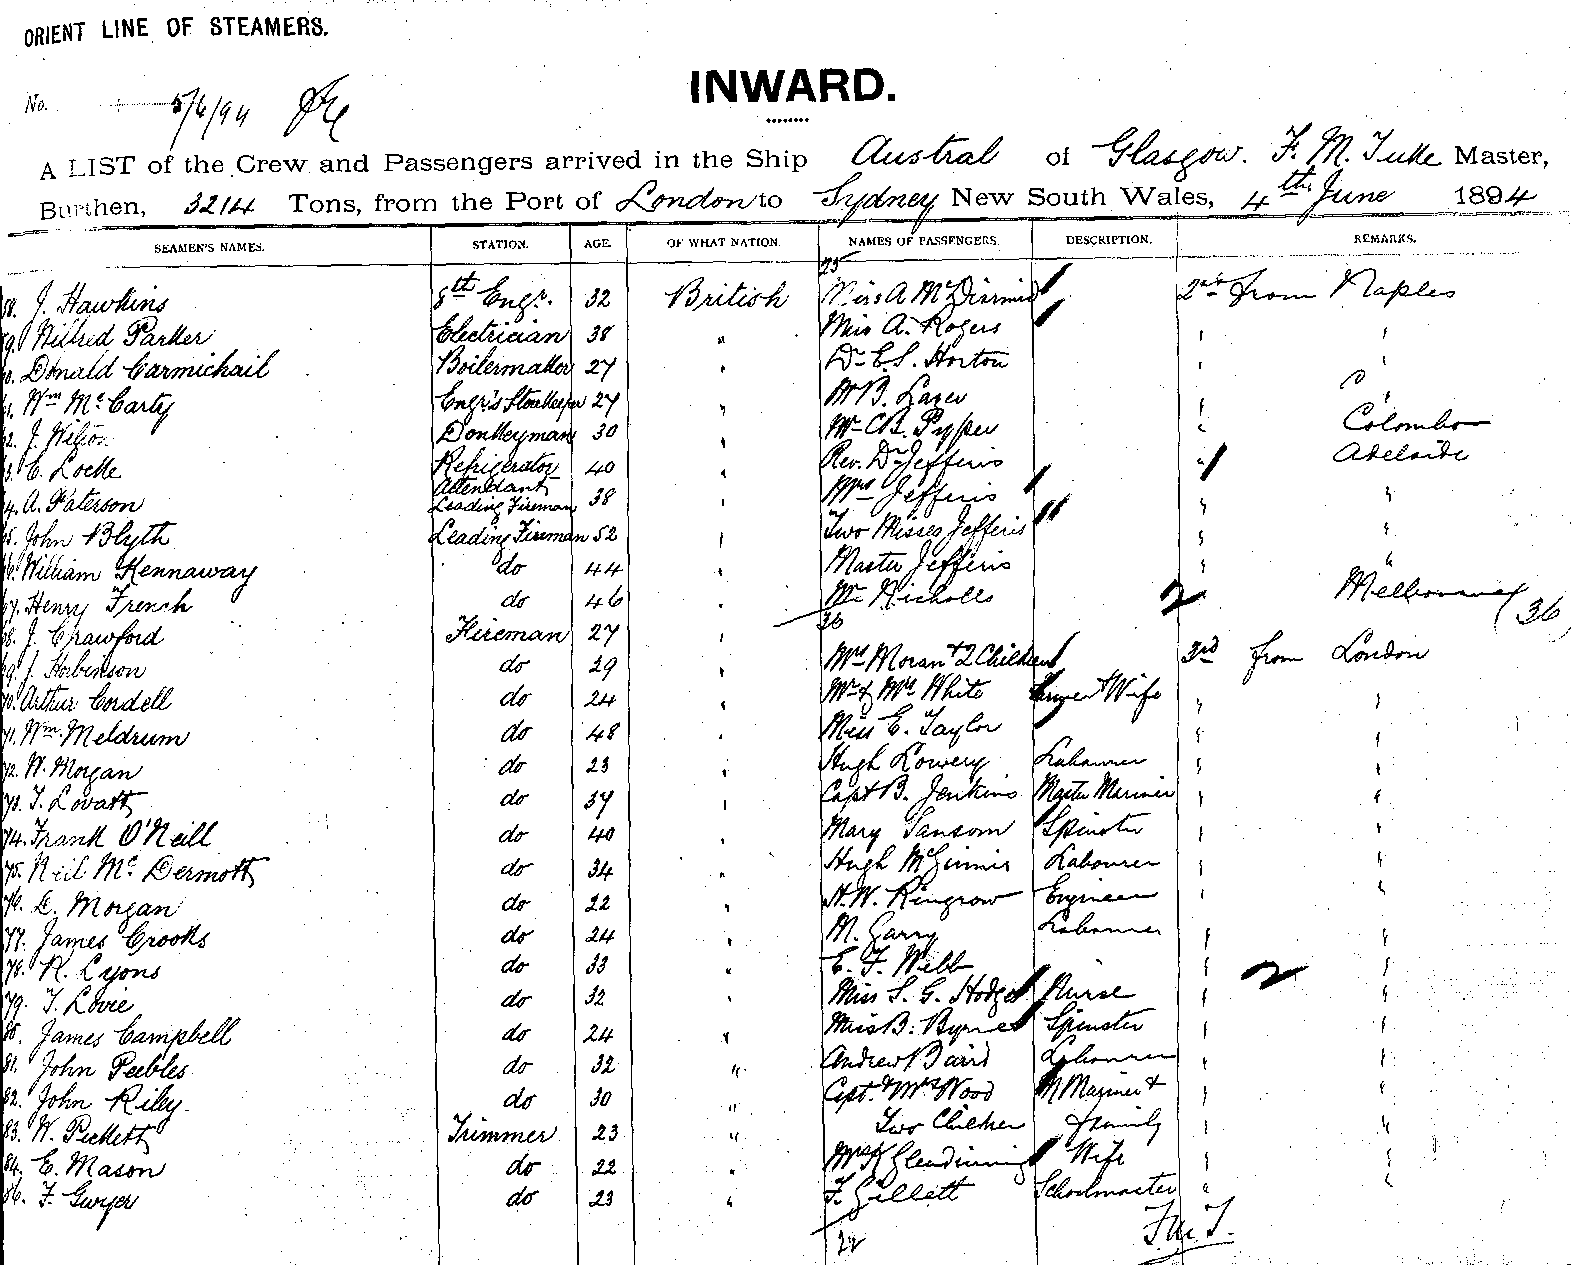 ORIENT LINE OF STEAMERS.
INWARD.
No. 5/6/94
A LIST of the Crew and Passengers arrived in the Ship Austral of Glasgow. F. M. Tuke Master,
Burthen, 3214 Tons, from the Port of London to Sydney New South Wales, 4th June 1894
SEAMEN'S NAMES. STATION. AGE. OF WHAT NATION. NAMES OF PASSENGERS. DESCRIPTION. REMARKS.
25
58. J. Hawkins 8th Engr. 32 British Miss A McDiarmid 2nd from Naples
59. Wilfred Parker Electrician 38 " Miss A. Rogers " "
60. Donald Carmichail Boilermaker 27 " Dr E. S. Horton " "
61. Wm McCarty Engr's Storekeeper 27 " B. " "
62. J. Wilson Donkeyman 30 " Mr C. B. Pyper " Colombo
63. C. Locke Refrigerator Attendant 40 " Rev. Dr Jefferis " Adelaide
64. A. Paterson Leading Fireman 38 " Mrs Jefferis " "
65. John Blyth Leading Fireman 52 " Two Misses Jefferis " "
66. William Hennaway do 44 " Master Jefferis " "
67. Henry French do 46 " Mr Nicholls 2 Melbourne
36 36
68. J. Crawford Fireman 27 "
69. J. Hobinson do 29 " Mrs Moran & 2 Children 3rd from London
70. Arthur Cordell do 24 " Mr & Mrs White & Wife " "
71. Wm Meldrum do 48 " Miss E. Taylor " "
72. W. Morgan do 23 " Hugh Lowery Labourer " "
73. T. Lovatt do 37 " Capt B. Jenkins Master Mariner " "
74. Frank O'Neill do 40 " Mary Sansom Spinster " "
75. Neil McDermott do 34 " Hugh McGinnis Labourer " "
76. L. Morgan do 22 " H. W. Ringrow Engineer " "
77. James Crooks do 24 " M. Garry Labourer " "
78. R. Lyons do 33 " E. F. Webb " 2 "
79. T. Lovie do 32 " Miss S. G. Hodges Nurse " "
80. James Campbell do 24 " Miss B. Byrne Spinster " "
81. John Peebles do 32 " Andrew Baird Labourer " "
82. John Riley do 30 " Capt. & Mrs Wood M Mariner & " "
83. W. Pickett Trimmer 23 " Two Children family " "
84. E. Mason do 22 " Mrs K Glendinning Wife " "
86. F. Gwyer do 23 " F. Gillett Schoolmaster " "
F.M.T.